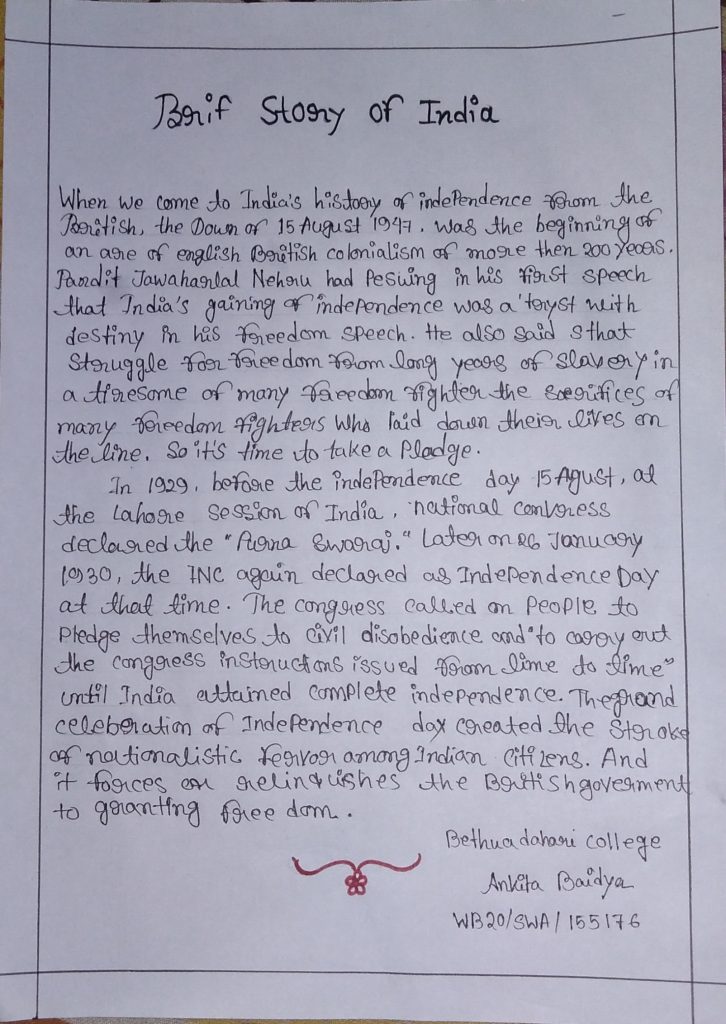 Brif Story of India
When we come to India's history of independence from the
British, the Down of 15 August 1947. was the beginning of
an are of english British colonialism of more then 200 years.
Pandit Jawaharlal Nehru had Pesuing in his first speech
that India's gaining of independence was a 'tryst with
destiny in his freedom speech. He also said sthat
Struggle for freedom from long years of slavery in
a tiresome of many freedom fighter the sacrifices of
many freedom fighters who laid down their lives on
the line. So it's time to take a Pledge.
In 1929, before the independence day 15 Agust, at
the Lahore Session of India, national
declared the "Purna Swaraj." Later on 26 January
1930, the INC again declared as Independence Day
at that time. The congress called on People to
Pledge themselves to civil disobedience and "to carry out
the congress instructions issued from time to time"
until India attained complete independence. The grand
celebration of Independence day created the Stroke
of nationalistic fervor among Indian Citizens. And
it forces on relinquishes the British goverment
to granting free dom.
Bethuadahari college
Ankita Baidya
WB20/SWA/155176